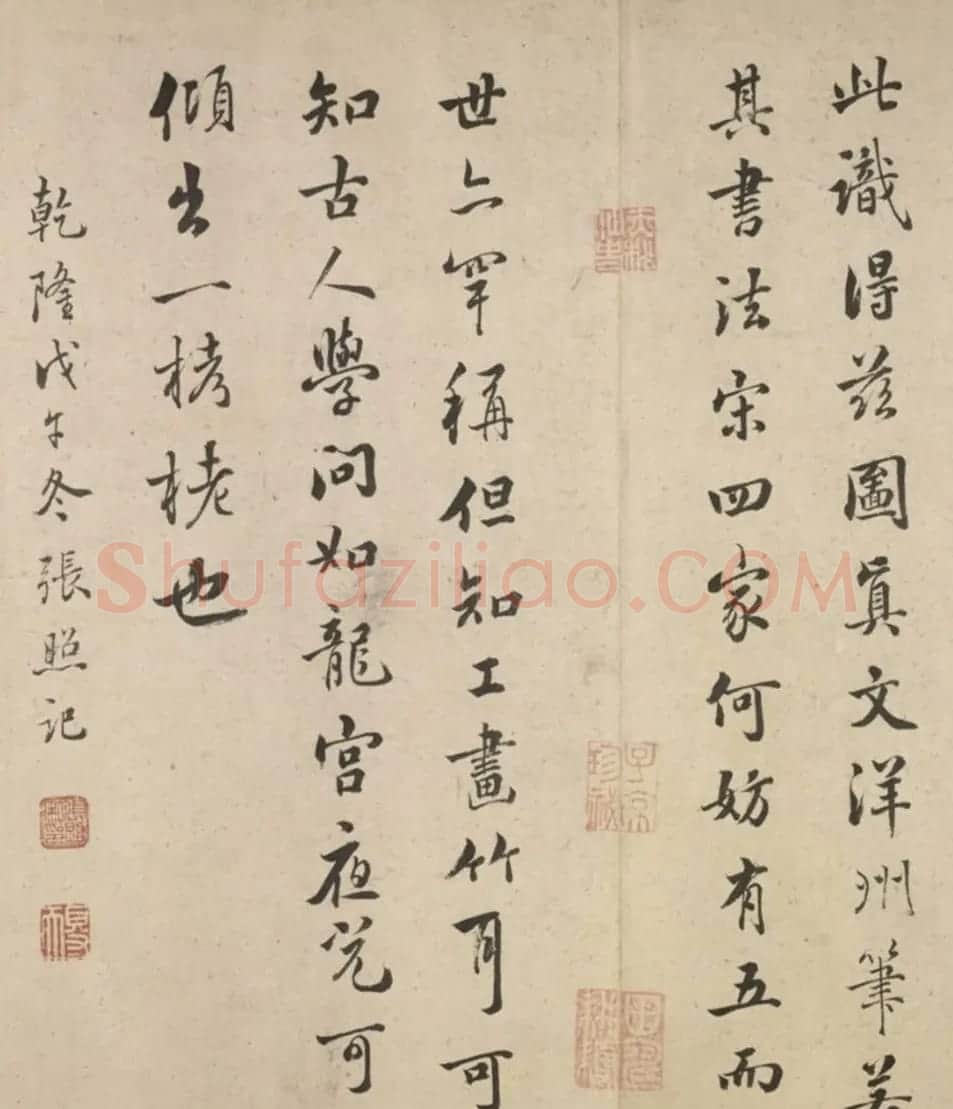 此識得茲圖眞文洋州筆
其書法宋四家何妨有五而
子京珍祕
世亦罕稱但知工畫竹耳可
知古人學問如龍宮夜光可
傾出一栲栳也
乾隆戊午冬張照記
Shufaziliao.COM